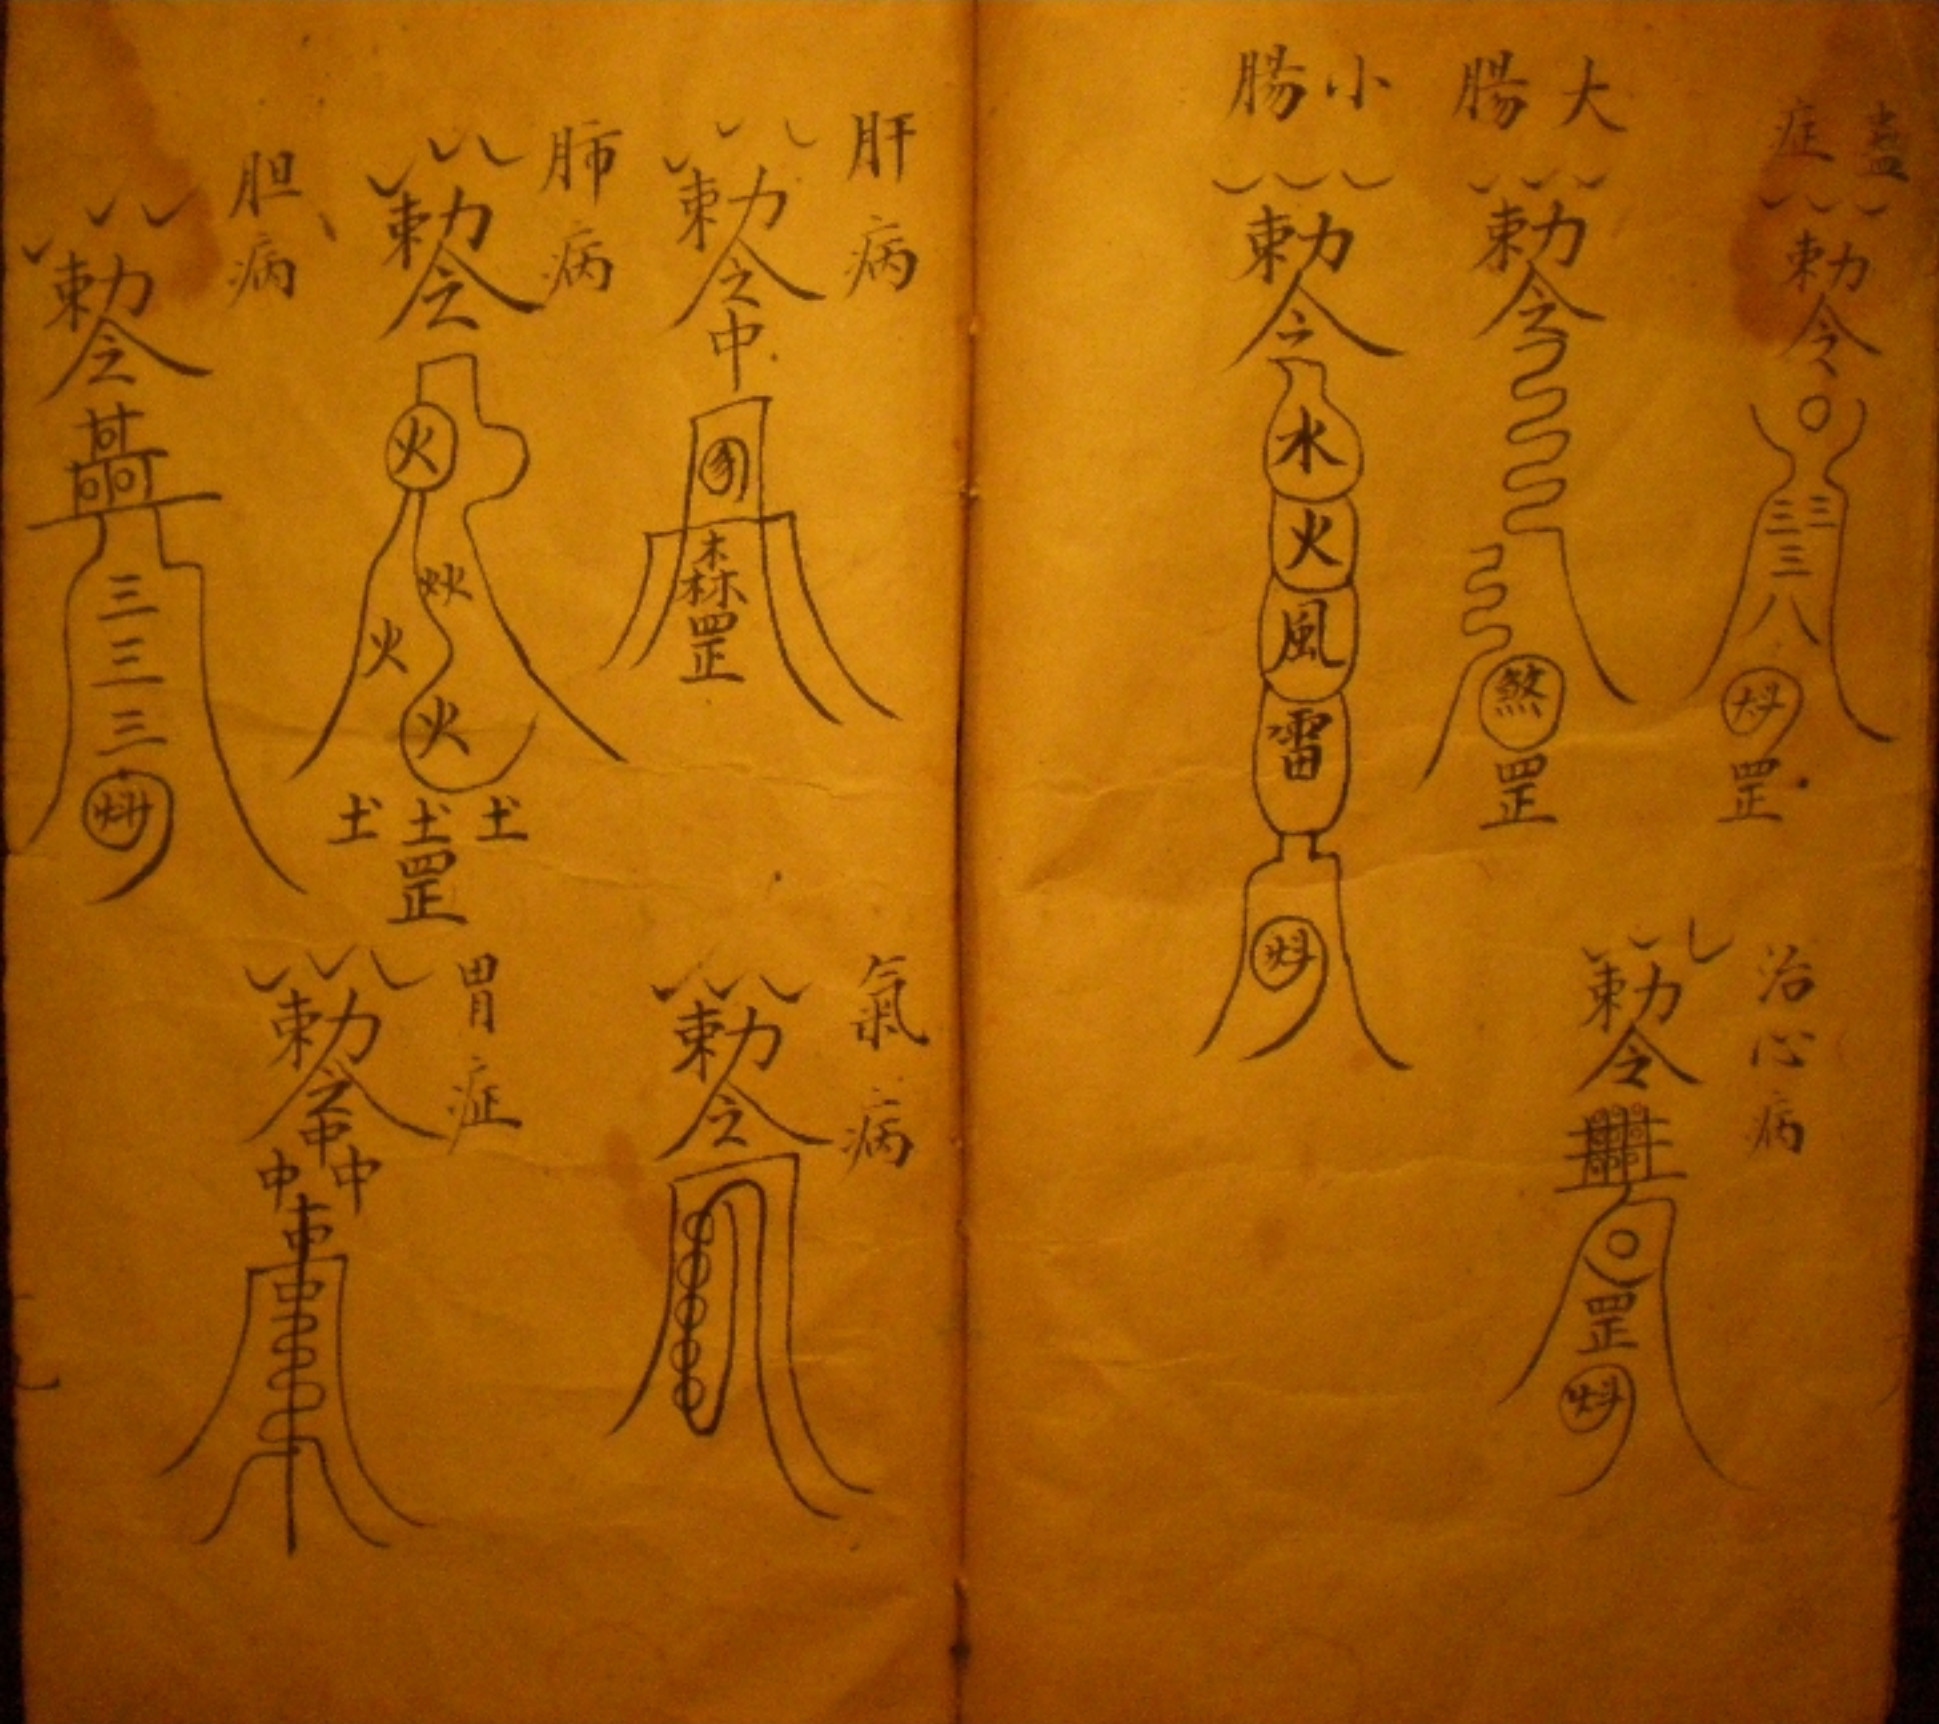 蠱症
勅令
三三三八
罡
大腸
勅令
煞
罡
小腸
勅令
水
火
風
雷
治心病
勅令
罡
肝病
勅令
中
森
罡
肺病
勅令
火
炏
火
火
土土土
罡
胆病
勅令
三
三
三
氣病
勅令
胃症
勅令
中
中中